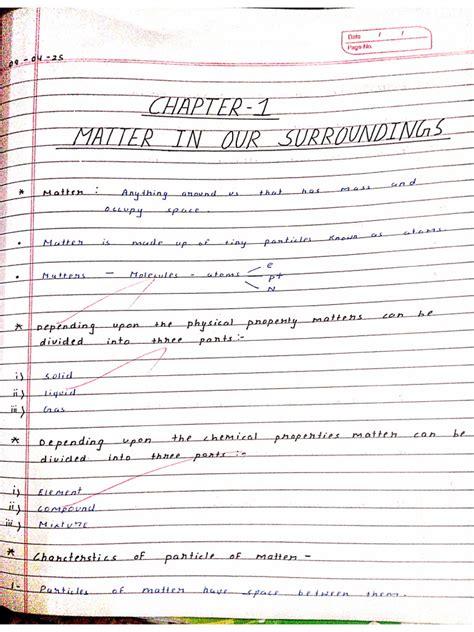 Date / /
Page No.
09-04-25
CHAPTER-1
MATTER IN OUR SURROUNDINGS
* Matter : Anything around us that has mass and
occupy space.
• Matter is made up of tiny particles known as atoms
• Matters – Molecules - atoms
e
p+
N
* Depending upon the physical property matters can be
divided into three parts:-
i) Solid
ii) Liquid
iii) Gas
* Depending upon the chemical properties matter can be
divided into three parts :-
i) Element
ii) Compound
iii) Mixture
* Charcterstics of particle of matter -
1- Particles of matter have space between them.